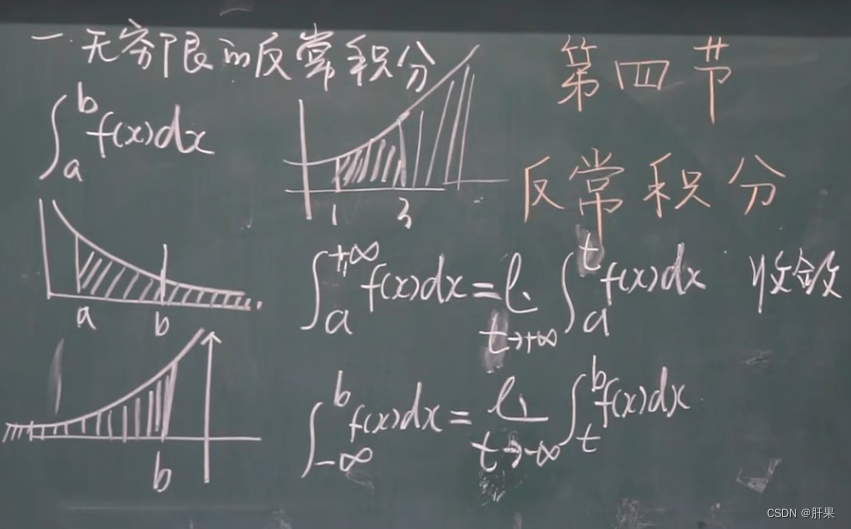 一.无穷限的反常积分
第四节
反常积分
∫_a^b f(x)dx
1 3
a b
∫_a^{+∞} f(x)dx = l. t→+∞ ∫_a^t f(x)dx 收敛
b
∫_{-∞}^b f(x)dx = li t→-∞ ∫_t^b f(x)dx.
CSDN @肝果